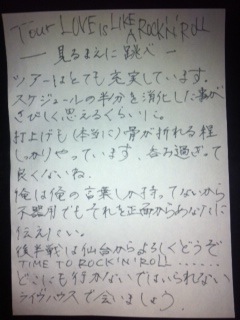 Tour LOVE is LIKE
A ROCK'N'ROLL
― 見るまえに跳べ ―
ツアーはとても充実しています。
スケジュールの半分を消化した事が
さびしく思えるくらいに。
打上げも(本当に)骨が折れる程
しっかりやっています。呑み過ぎって
良くないね。
俺は俺の言葉しか持ってないから
不器用でもそれを正面からあなたに
伝えたい。
後半戦は仙台からよろしくどうぞ
TIME TO ROCK'N'ROLL......
どこにも行かないではいられない
ライヴハウスで会いましょう。